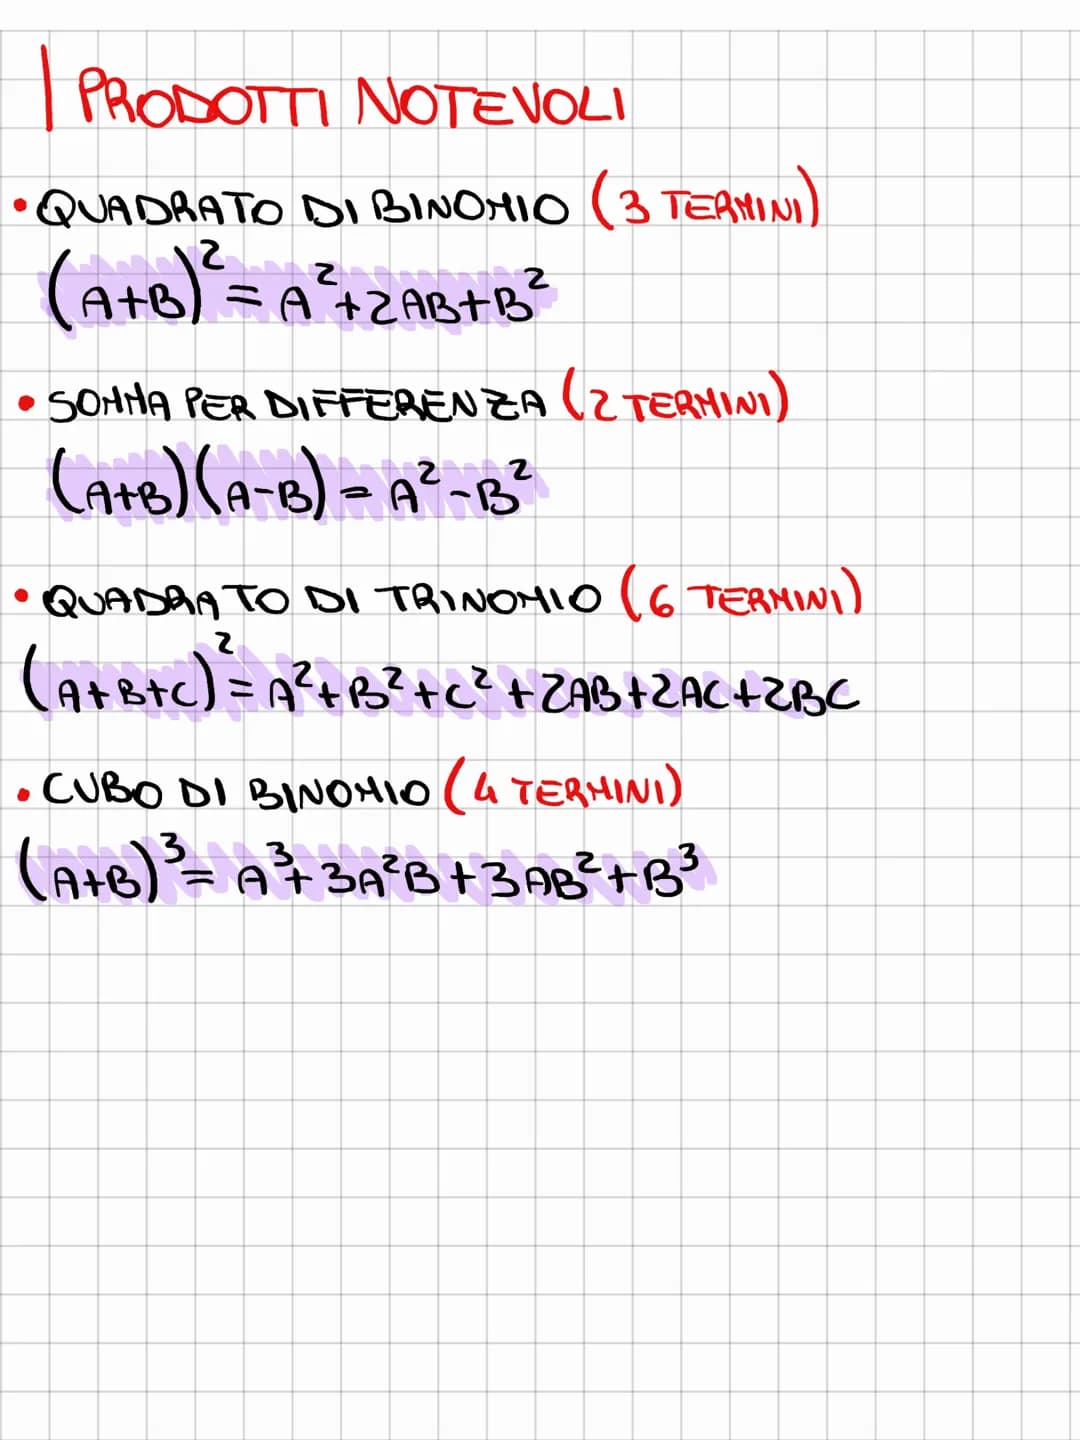 I PRODOTTI NOTEVOLI
• QUADRATO DI BINOMIO (3 TERMINI)
(A+B)² = A²+2AB+B²
• SOMMA PER DIFFERENZA (2 TERMINI)
(A+B)(A-B) = A²-B²
• QUADRATO DI TRINOMIO (6 TERMINI)
(A+B+C)² = A²+B²+C²+2AB+2AC+2BC
• CUBO DI BINOMIO (4 TERMINI)
(A+B)³ = A³+3A²B+3AB²+B³